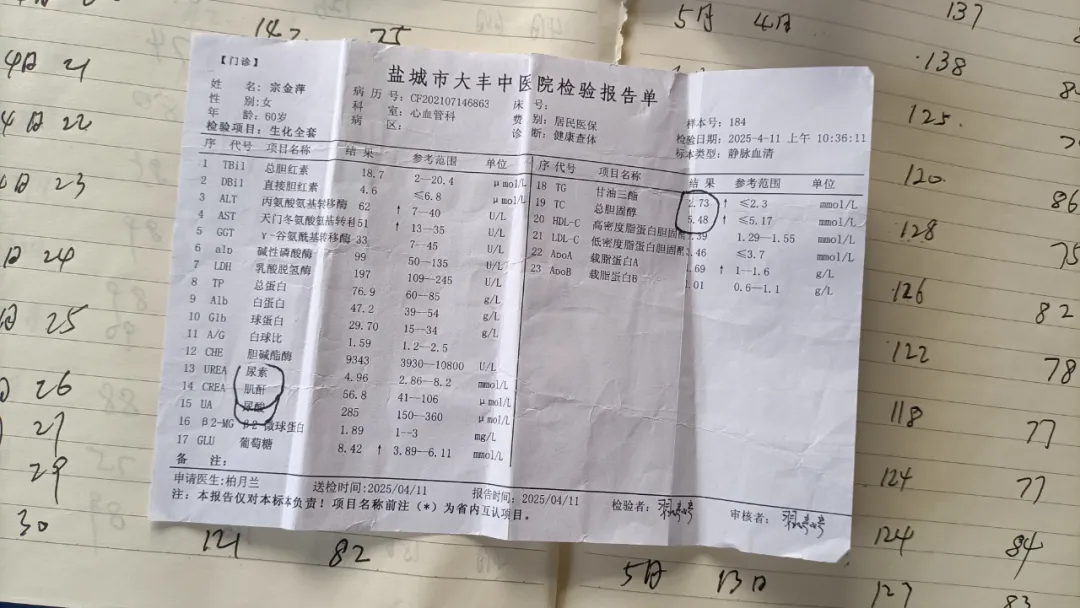 142 25
4日 21
4日 22
4日 23
日 24
日 25
26
27
29
30
121 82
【门诊】
盐城市大丰中医院检验报告单
姓 名: 宗金萍
病 历 号: CF202107146863
床 号:
性 别: 女
科 室: 心血管科
费 别: 居民医保
样本号: 184
年 龄: 60岁
病 区:
诊 断: 健康查体
检验日期: 2025-4-11 上午 10:36:11
检验项目: 生化全套
标本类型: 静脉血清
序 代号 项目名称 结 果 参考范围 单位
1 TBil 总胆红素 18.7 2--20.4 μmol/L
2 DBil 直接胆红素 4.6 ≤6.8 μmol/L
3 ALT 丙氨酸氨基转移酶 62 ↑ 7--40 U/L
4 AST 天门冬氨酸氨基转移 51 ↑ 13--35 U/L
5 GGT γ-谷氨酰基转移酶 33 7--45 U/L
6 alp 碱性磷酸酶 99 50--135 U/L
7 LDH 乳酸脱氢酶 197 109--245 U/L
8 TP 总蛋白 76.9 60--85 g/L
9 Alb 白蛋白 47.2 39--54 g/L
10 Glb 球蛋白 29.70 15--34 g/L
11 A/G 白球比 1.59 1.2--2.5
12 CHE 胆碱酯酶 9343 3930--10800 U/L
13 UREA 尿素 4.96 2.86--8.2 mmol/L
14 CREA 肌酐 56.8 41--106 μmol/L
15 UA 尿酸 285 150--360 μmol/L
16 β2-MG β2-微球蛋白 1.89 1--3 mg/L
17 GLU 葡萄糖 8.42 ↑ 3.89--6.11 mmol/L
序 代号 项目名称 结 果 参考范围 单位
18 TG 甘油三酯 2.73 ↑ ≤2.3 mmol/L
19 TC 总胆固醇 5.48 ↑ ≤5.17 mmol/L
20 HDL-C 高密度脂蛋白胆固 .39 1.29--1.55 mmol/L
21 LDL-C 低密度脂蛋白胆固醇 .46 ≤3.7 mmol/L
22 ApoA 载脂蛋白A .69 ↑ 1--1.6 g/L
23 ApoB 载脂蛋白B .01 0.6--1.1 g/L
备 注:
申请医生: 柏月兰
送检时间: 2025/04/11
报告时间: 2025/04/11
检验者:
审核者:
注: 本报告仅对本标本负责! 项目名称前注(*)为省内互认项目。
5月 4日 137
138
125
120 86
128 75
126 82
122 78
118 77
124 77
124 84
5月 13日 127 83